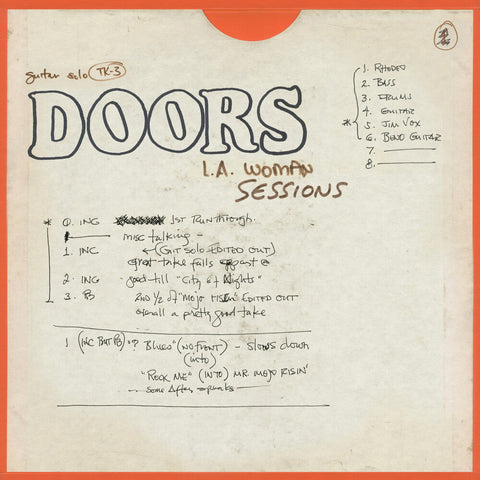 guitar solo TK-3
DOORS
L.A. WOMAN
SESSIONS
1. RHODES
2. BASS
3. DRUMS
4. GUITAR
* 5. JIM VOX
6. BEND GUITAR
7.
8.
* 0. ING 1ST RUNTHROUGH.
MISC talking -
1. INC (GIT SOLO EDITED OUT)
great take falls apart @
2. ING good till "City of Nights"
3. PB 2ND 1/2 of "MOJO RISIN" EDITED OUT
overall a pretty good take
1 (INC BUT PB) "? Blues" (NO FRONT) - Slows down
(into)
"ROCK ME" (INTO) MR. MOJO RISIN'
- Some After -